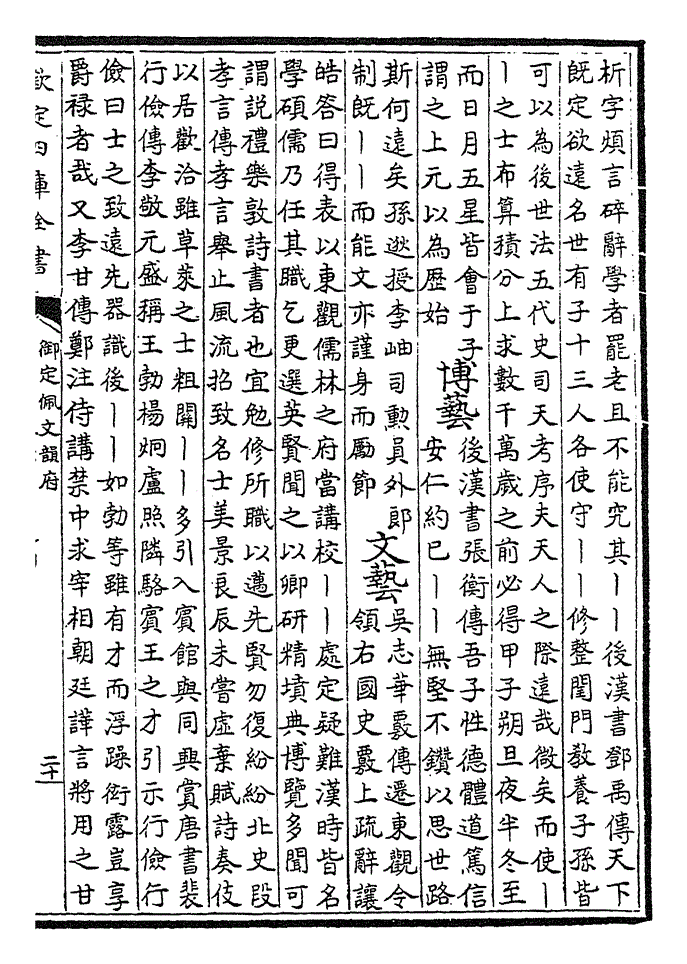 析字煩言碎辭學者罷老且不能究其丨丨後漢書鄧禹傳天下
既定欲遠名世有子十三人各使守丨丨修整閨門教養子孫皆
可以為後世法五代史司天考序夫天人之際遠哉微矣而使丨
丨之士布算積分上求數千萬歲之前必得甲子朔旦夜半冬至
而日月五星皆會于子
謂之上元以為歴始
博藝
後漢書張衡傳吾子性德體道篤信
安仁約已丨丨無堅不鑽以思世路
斯何遠矣孫逖授李岫司勲員外郎
制既丨丨而能文亦謹身而勵節
文藝
吳志華覈傳遷東觀令
領右國史覈上疏辭讓
皓答曰得表以東觀儒林之府當講校丨丨處定疑難漢時皆名
學碩儒乃任其職乞更選英賢聞之以卿研精墳典博覽多聞可
謂説禮樂敦詩書者也宜勉修所職以邁先賢勿復紛紛北史段
孝言傳孝言舉止風流招致名士美景良辰未嘗虛棄賦詩奏伎
以居歡洽雖草萊之士粗闚丨丨多引入賓館與同興賞唐書裴
行儉傳李敬元盛稱王勃楊炯盧照隣駱賓王之才引示行儉行
儉曰士之致遠先器識後丨丨如勃等雖有才而浮躁衒露豈享
爵禄者哉又李甘傳鄭注侍講禁中求宰相朝廷譁言將用之甘
欽定四庫全書
御定佩文韻府
二十